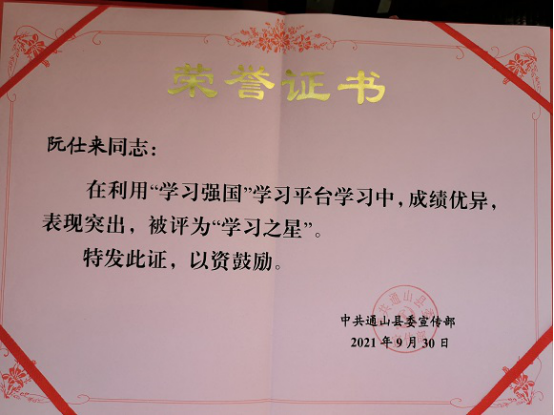 荣誉证书
阮仕来同志：
在利用“学习强国”学习平台学习中，成绩优异，
表现突出，被评为“学习之星”。
特发此证，以资鼓励。
中共通山县委宣传部
2021年9月30日